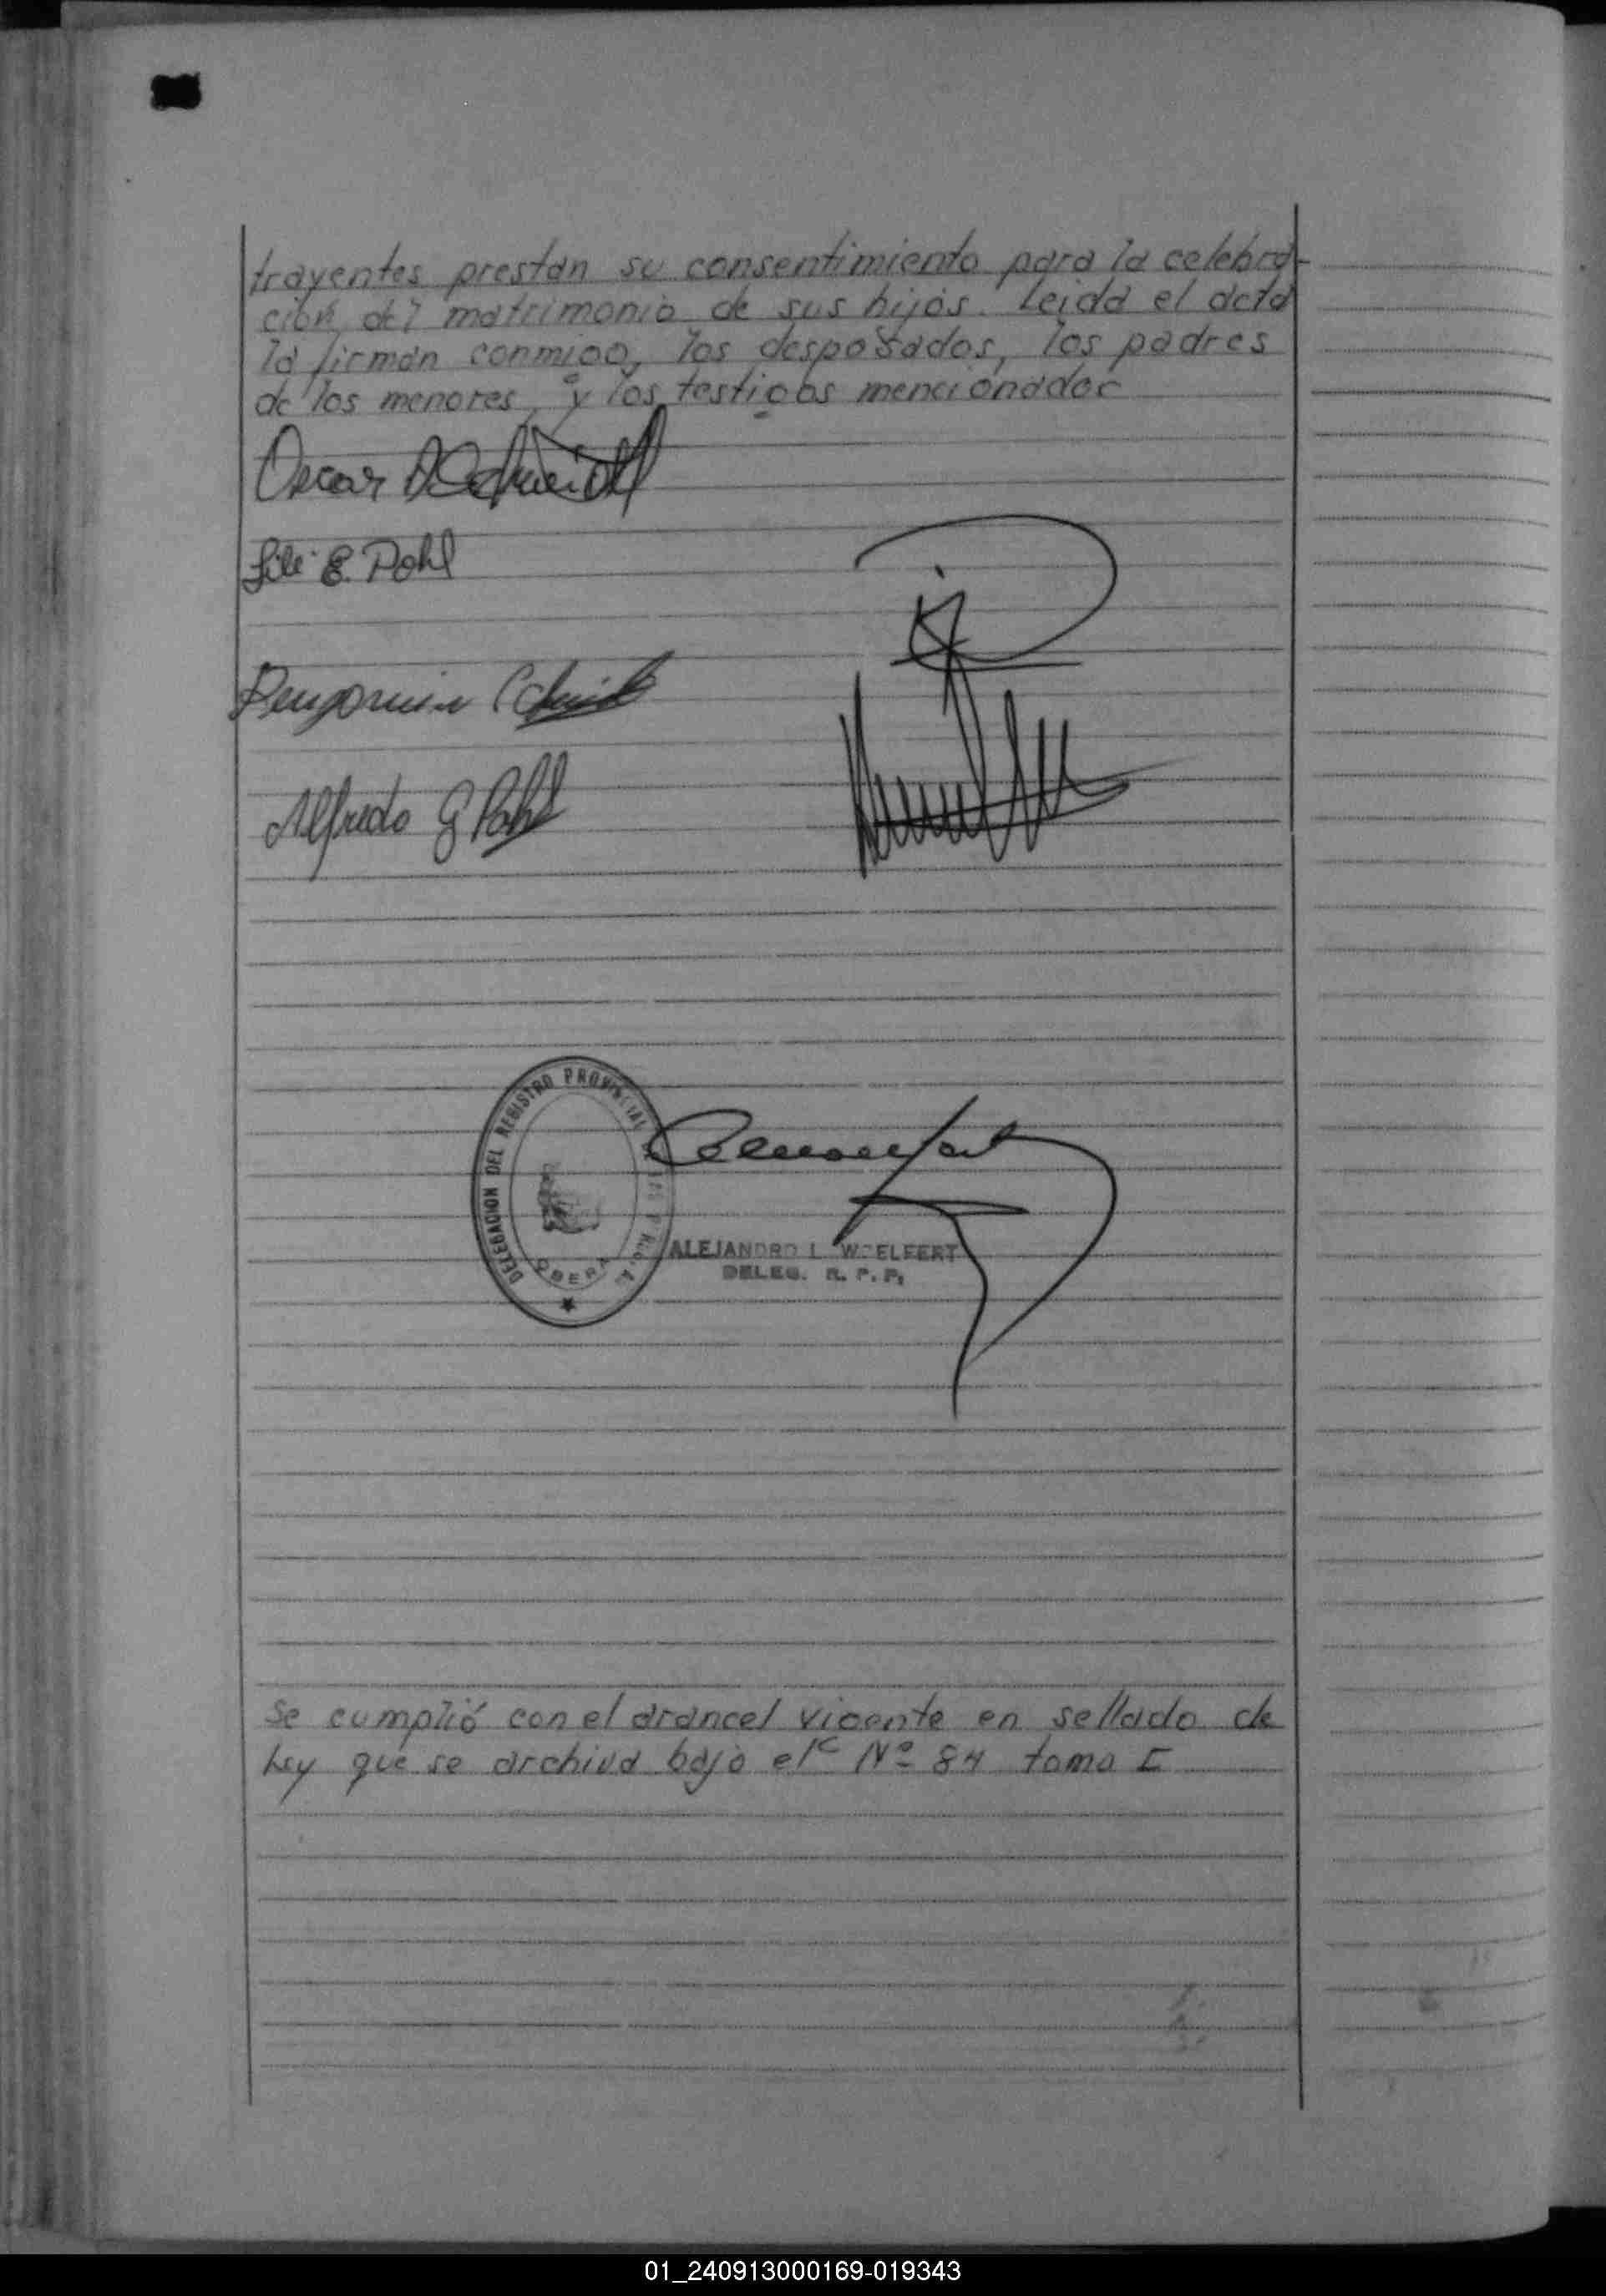 trayentes prestan su consentimiento para la celebra-
ción del matrimonio de sus hijos. Leida el acta
la firman conmigo, los desposados, los padres
de los menores, y los testigos mencionados
Oscar A Schmidt
Lili E. Pohl
Benjamin Schmidt
Alfredo G Pohl
DELEGACION DEL REGISTRO PROVINCIAL DE LAS P
OBERA
ALEJANDRO L. WOELFERT
DELEG. R. P. P.
Se cumplió con el arancel vigente en sellado de
Ley que se archiva bajo el Nº 84 tomo I
01_240913000169-019343